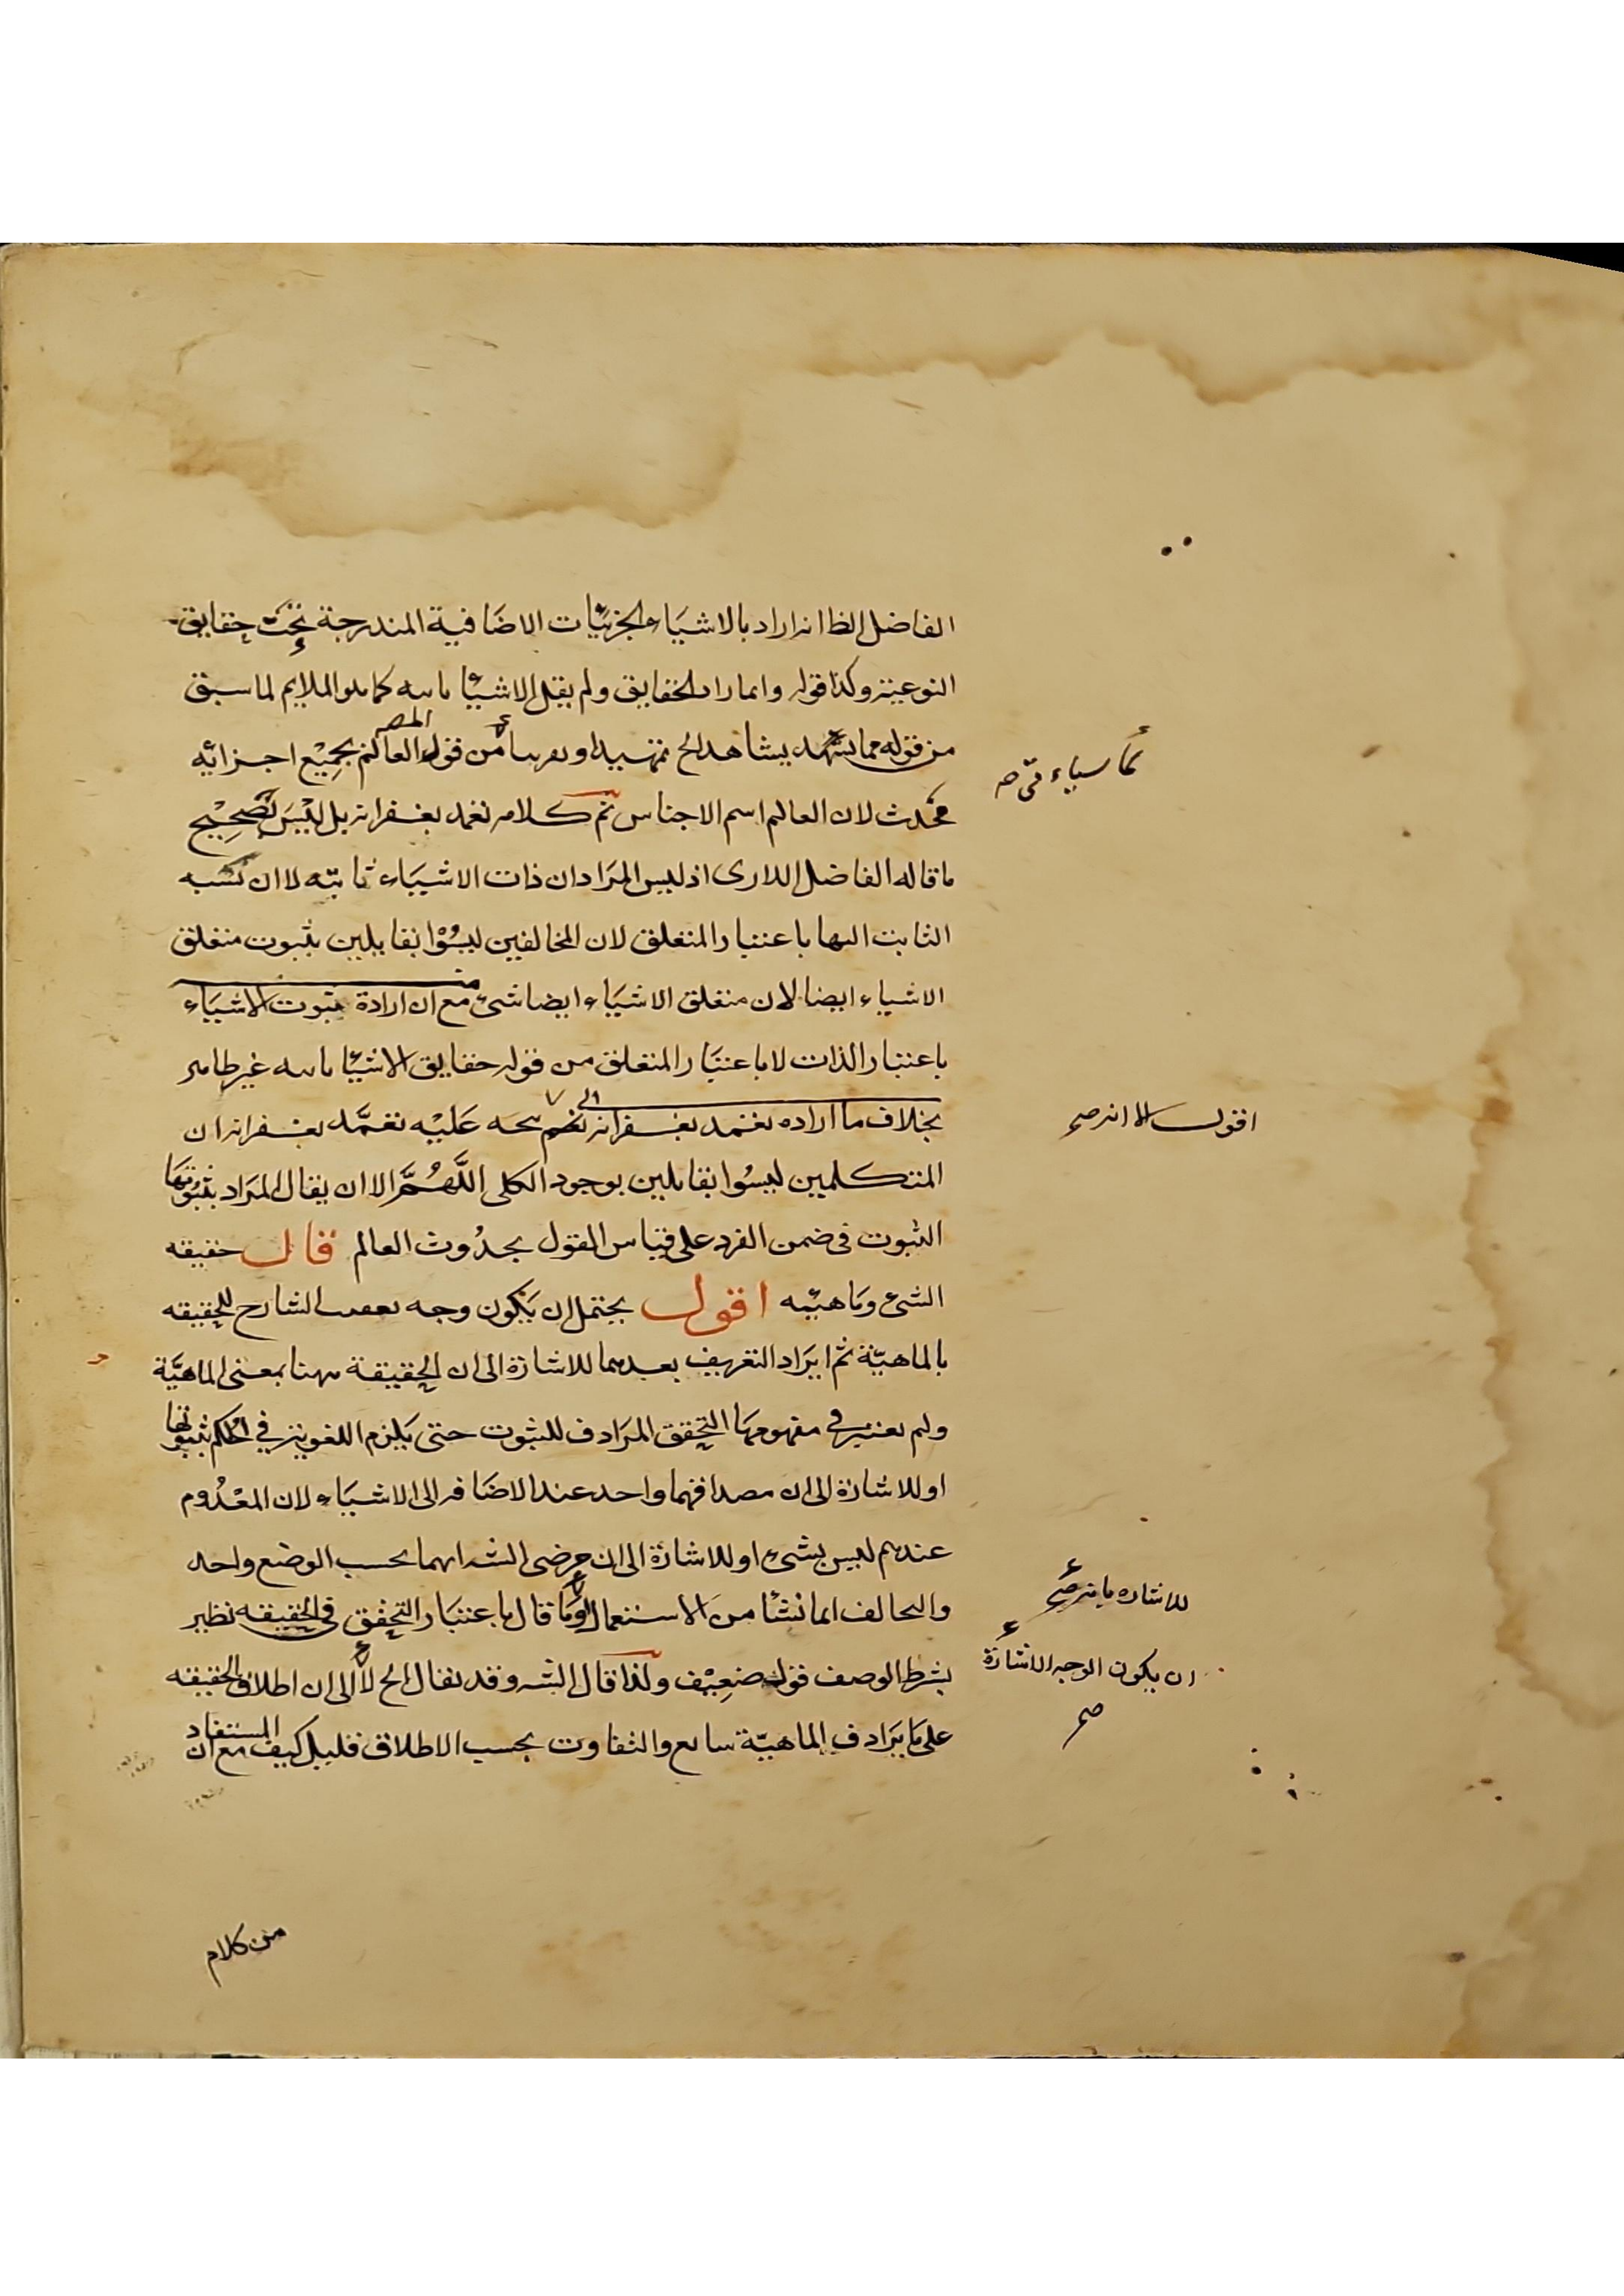 الفاضل الظ انه اراد بالاشياء الجزئيات الاضافية المندرجة تحت حقايق
النوعية وكذا قوله وانما اراد الحقايق ولم يقل الاشياء ثابته كما هو الملايم لما سبق
من قوله مما يشاهد الخ تمهيدا من قول المصـ العالم بجميع اجزائه
محدث لان العالم اسم الاجناس تم كلامه تغمد بغفرانه بل ليس بصحيح
ما قاله الفاضل اللارى اذ ليس المراد ان ذات الاشياء ثابته لا ان نسبه
الثابت اليها باعتبار المتعلق لان المخالفين ليسوا بقايلين بثبوت متعلق
الاشياء ايضا لان متعلق الاشياء ايضا شئ مع ان ارادة ثبوت الاشياء
باعتبار الذات لا باعتبار المتعلق من قوله حقايق الاشيا ثابته غير ظاهر
بخلاف ما اراده تغمد بغفرانه يتجه عليه تغمد بغفرانه ان
المتكلمين ليسوا بقايلين بوجود الكلى اللهم الا ان يقال المراد بثبوتها
الثبوت فى ضمن الفرد على قياس القول بحدوث العالم قال حقيقه
الشئ وماهيته اقول يحتمل ان يكون وجه تعقيب الشارح للحقيقه
بالماهية ثم ايراد التعريف بعدهما للاشارة الى ان الحقيقة ههنا بمعنى الماهية
ولم يعتبر فى مفهومها التحقق المرادف للثبوت حتى يلزم اللغوية في الحكم بثبوتها
او للاشارة الى ان مصداقهما واحد عند الاضافه الى الاشياء لان المعدوم
عندهم ليس بشئ او للاشارة الى ان مرضى الشـ انهما بحسب الوضع واحد
والتخالف انما نشأ من الاستعمال وما قال باعتبار التحقق فى الحقيقه نظير
بشرط الوصف قول ضعيف ولذا قال الشـ وقد يقال الخ لا الى ان اطلاق الحقيقه
على ما يرادف الماهية شايع والتفاوت بحسب الاطلاق قليل كيف مع ان المستفاد
من كلام
اقول الا انه صح
للاشاره بانه صح
ان يكون الوجه الاشارة
صح